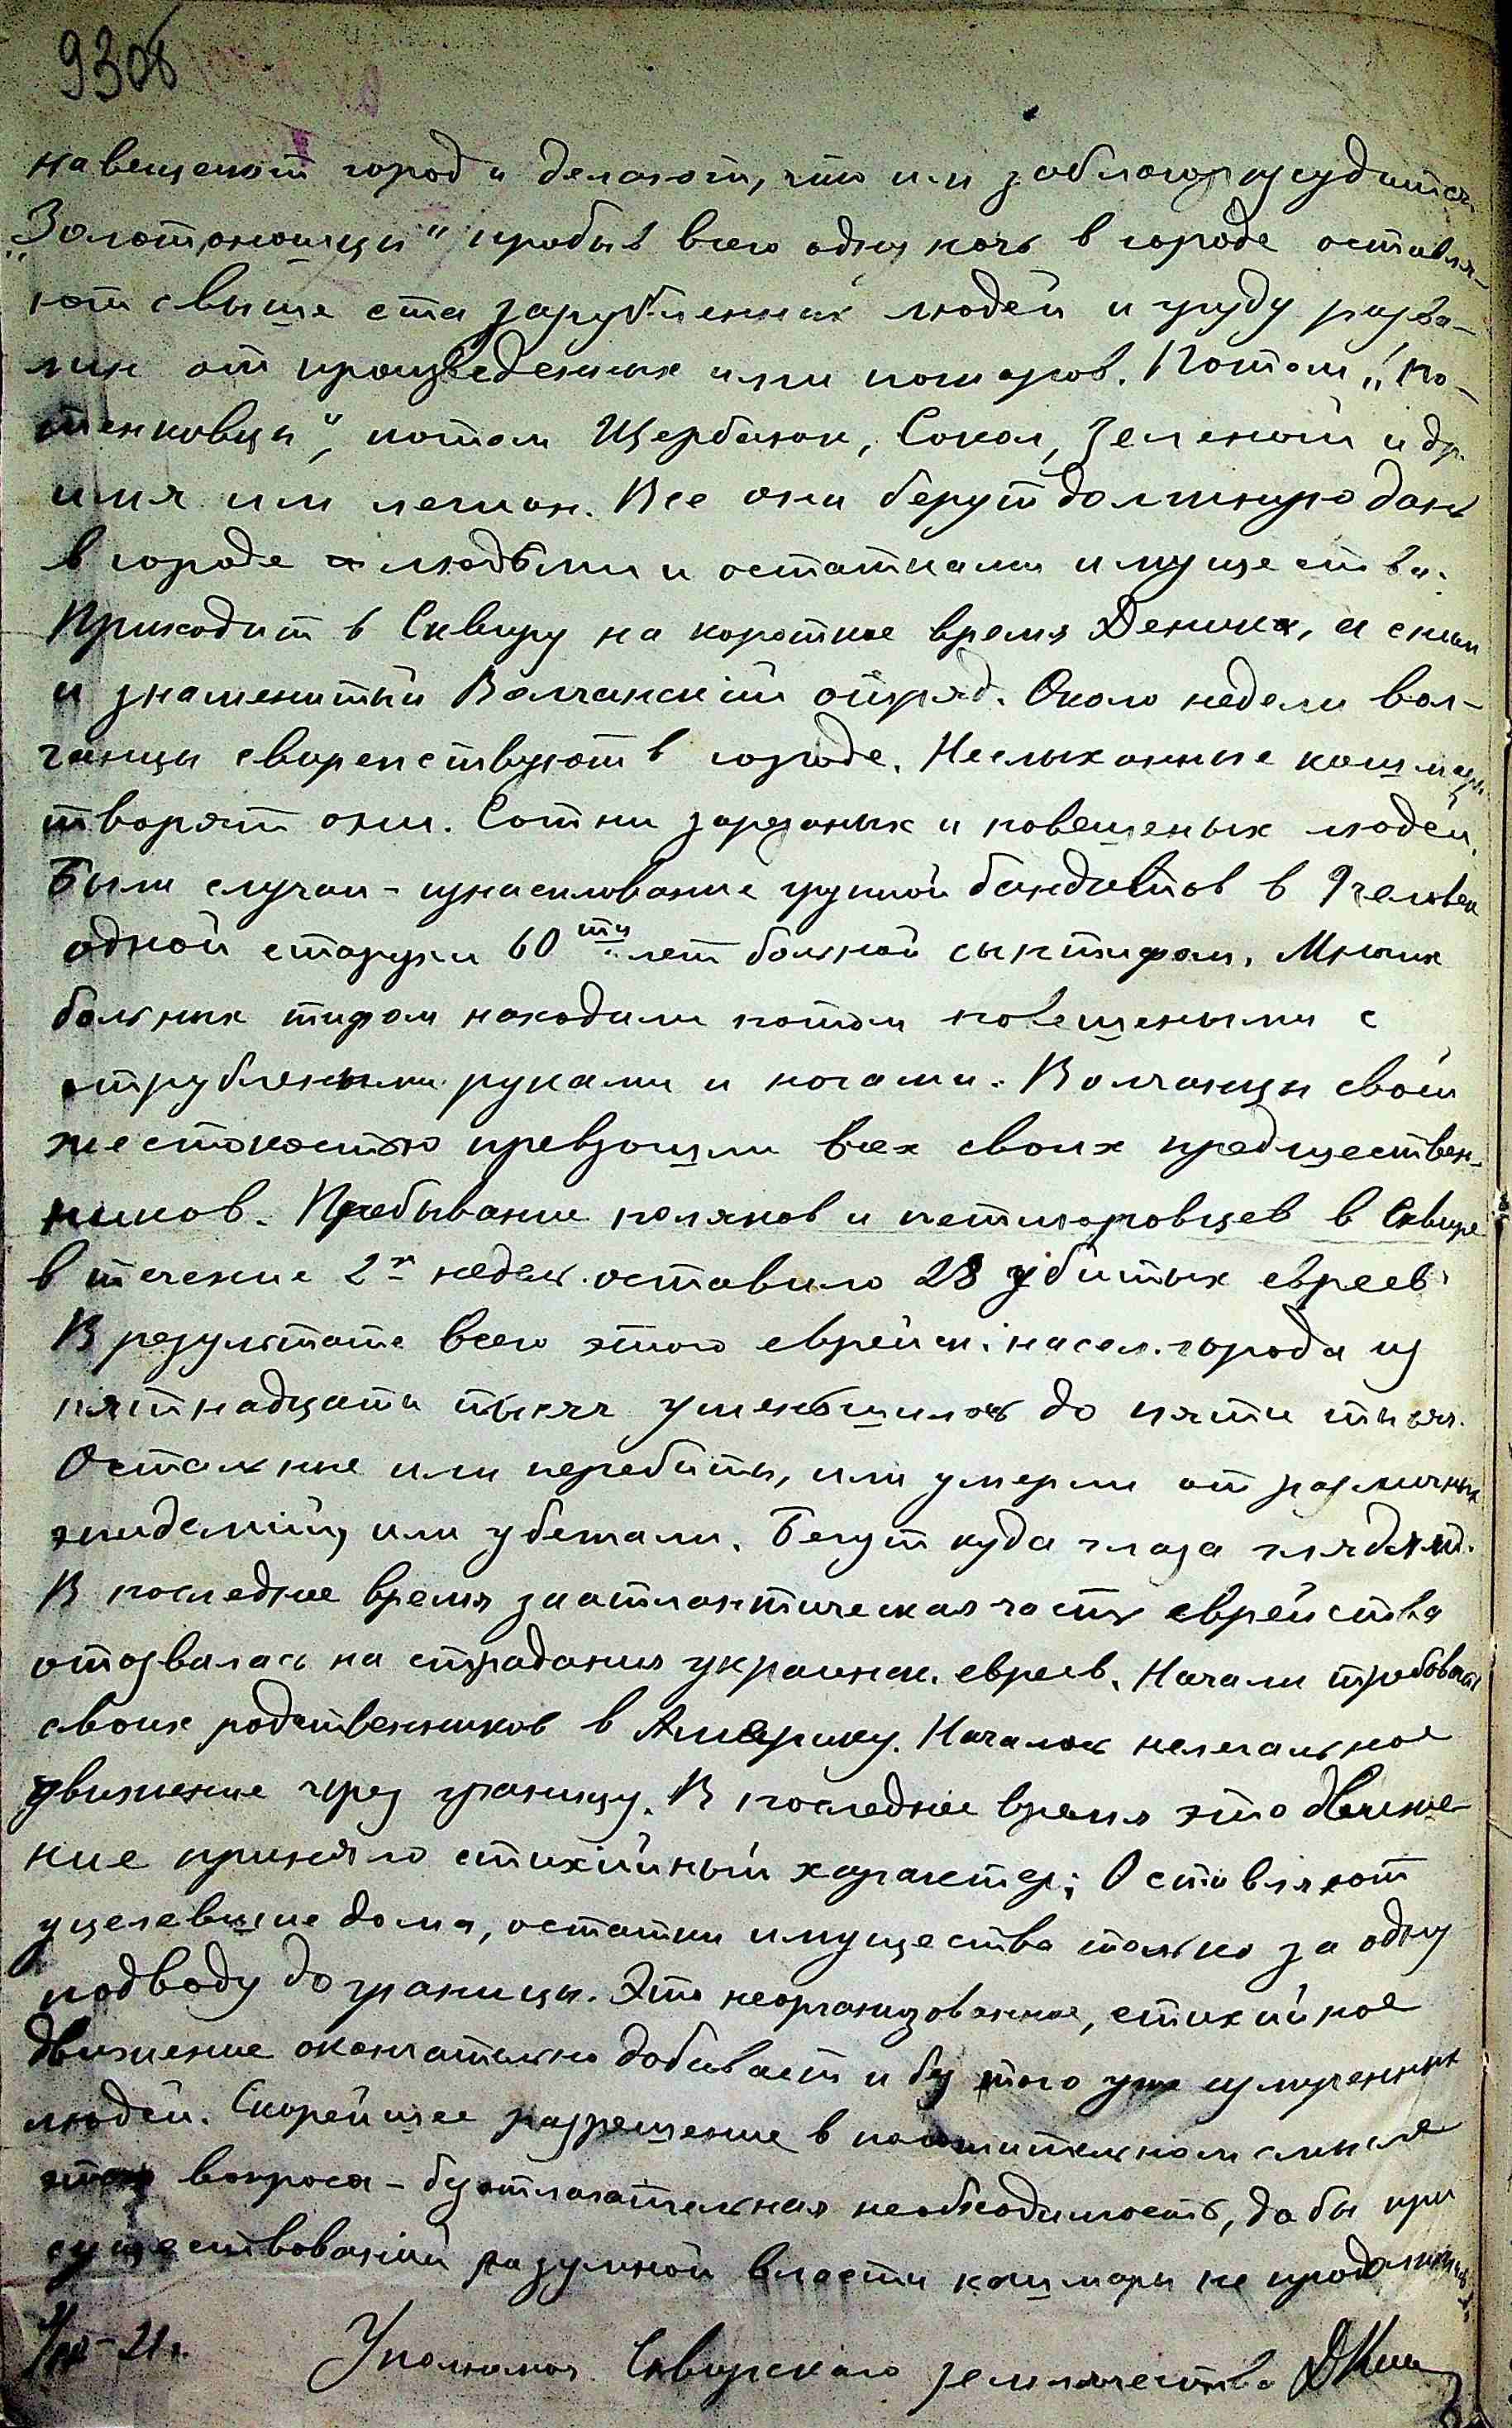 9308
навещают город и делают, что им заблагорассудится
„Золотоношцы" пробыв всего одну ночь в городе оставля-
ют свыше ста зарубленных людей и груду разва-
лин от произведенных ими пожаров. Потом „По-
тенковцы", потом Щербанюк, Сокол, Зеленый и др.
имя им легион. Все они берут должную дань
в городе людьми и остатками имущества.
Приходит в Сквиру на короткое время Деникин, а с ним
и знаменитый Волчанскій отряд. Около недели вол-
чанцы свирепствуют в городе. Неслыханные кошмары
творят они. Сотни зарезаных и повешеных людей.
Были случаи - изнасилование группой бандитов в 9 человек
одной старухи 60ти лет больной сыптифом. Многих
больных тифом находили потом повешеными с
отрублеными руками и ногами. Волчанцы своей
жестокостью превзошли всех своих предшествен-
ников. Пребывание поляков и петлюровцев в Сквире
в течение 2х недель оставило 28 убитых евреев.
В результате всего этого еврейск. насел. города из
пятнадцати тысяч уменьшилось до пяти тысяч.
Остальные или перебиты, или умерли от различных
эпидемій, или убежали. Бегут куда глаза глядят.
В последнее время заатлантическая часть еврейства
отозвалась на страдания украинск. евреев. Начали требовать
своих родственников в Америку. Началось нелегальное
движение через границу. В последнее время это движе-
ние приняло стихійный характер; Оставляют
уцелевшие дома, остатки имущества только за одну
подводу до границы. Это неорганизованное, стихийное
движение окончательно добивает и без того уже измученных
людей. Скорейшее разрешение в положительном смысле
этого вопроса - безотлагательная необходимость, дабы при
существованіи разумной власти кошмары не продолжались.
21г. Уполномоч. Сквирскаго землячества